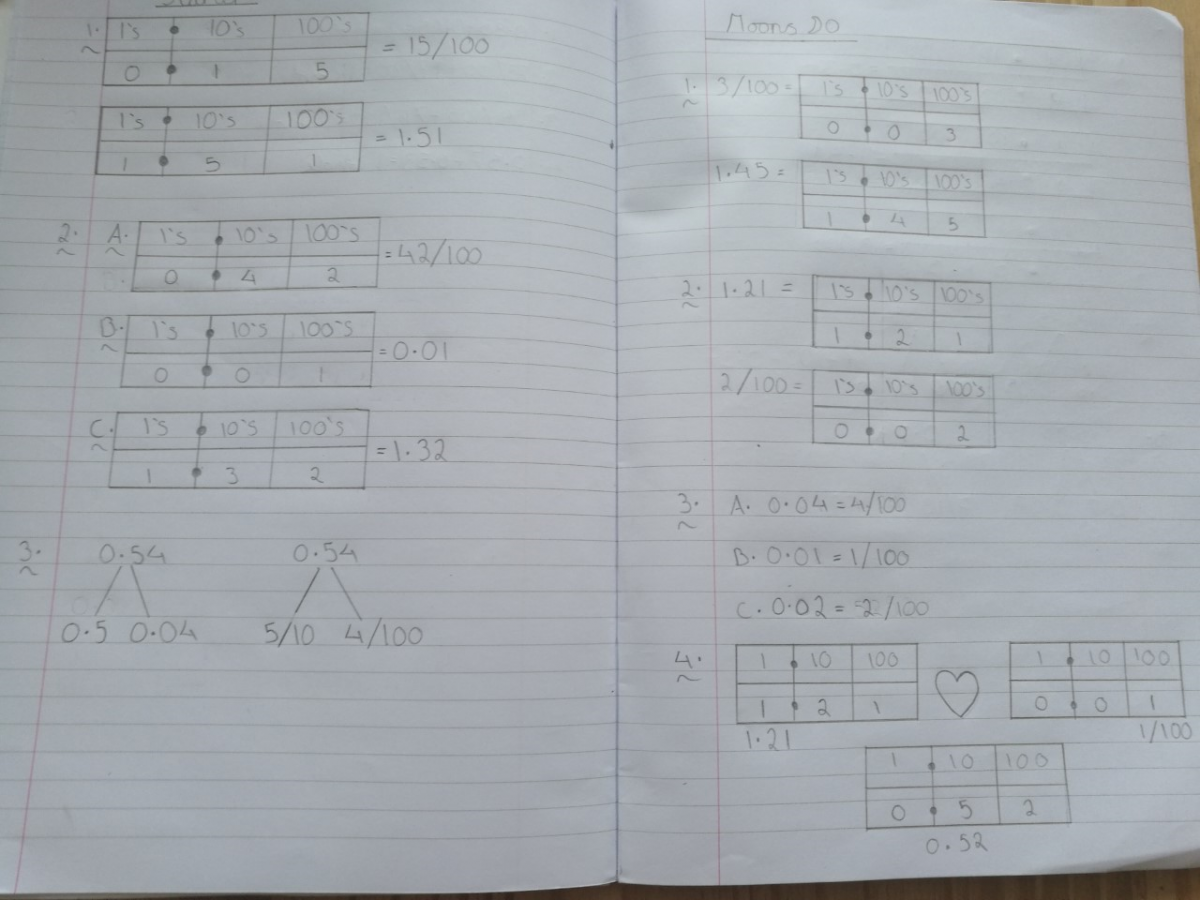 1. 1's . 10's 100's
0 . 1 5 = 15/100
1's . 10's 100's
1 . 5 1 = 1.51
2. A. 1's . 10's 100's
0 . 4 2 = 42/100
B. 1's . 10's 100's
0 . 0 1 = 0.01
C. 1's . 10's 100's
1 . 3 2 = 1.32
3. 0.54 0.54
0.5 0.04 5/10 4/100
Moons DO
1. 3/100 = 1's . 10's 100's
0 . 0 3
1.45 = 1's . 10's 100's
1 . 4 5
2. 1.21 = 1's . 10's 100's
1 . 2 1
2/100 = 1's . 10's 100's
0 . 0 2
3. A. 0.04 = 4/100
B. 0.01 = 1/100
C. 0.02 = 2/100
4. 1 . 10 100 1 . 10 100
1 . 2 1 0 . 0 1
1.21 1/100
1 . 10 100
0 . 5 2
0.52